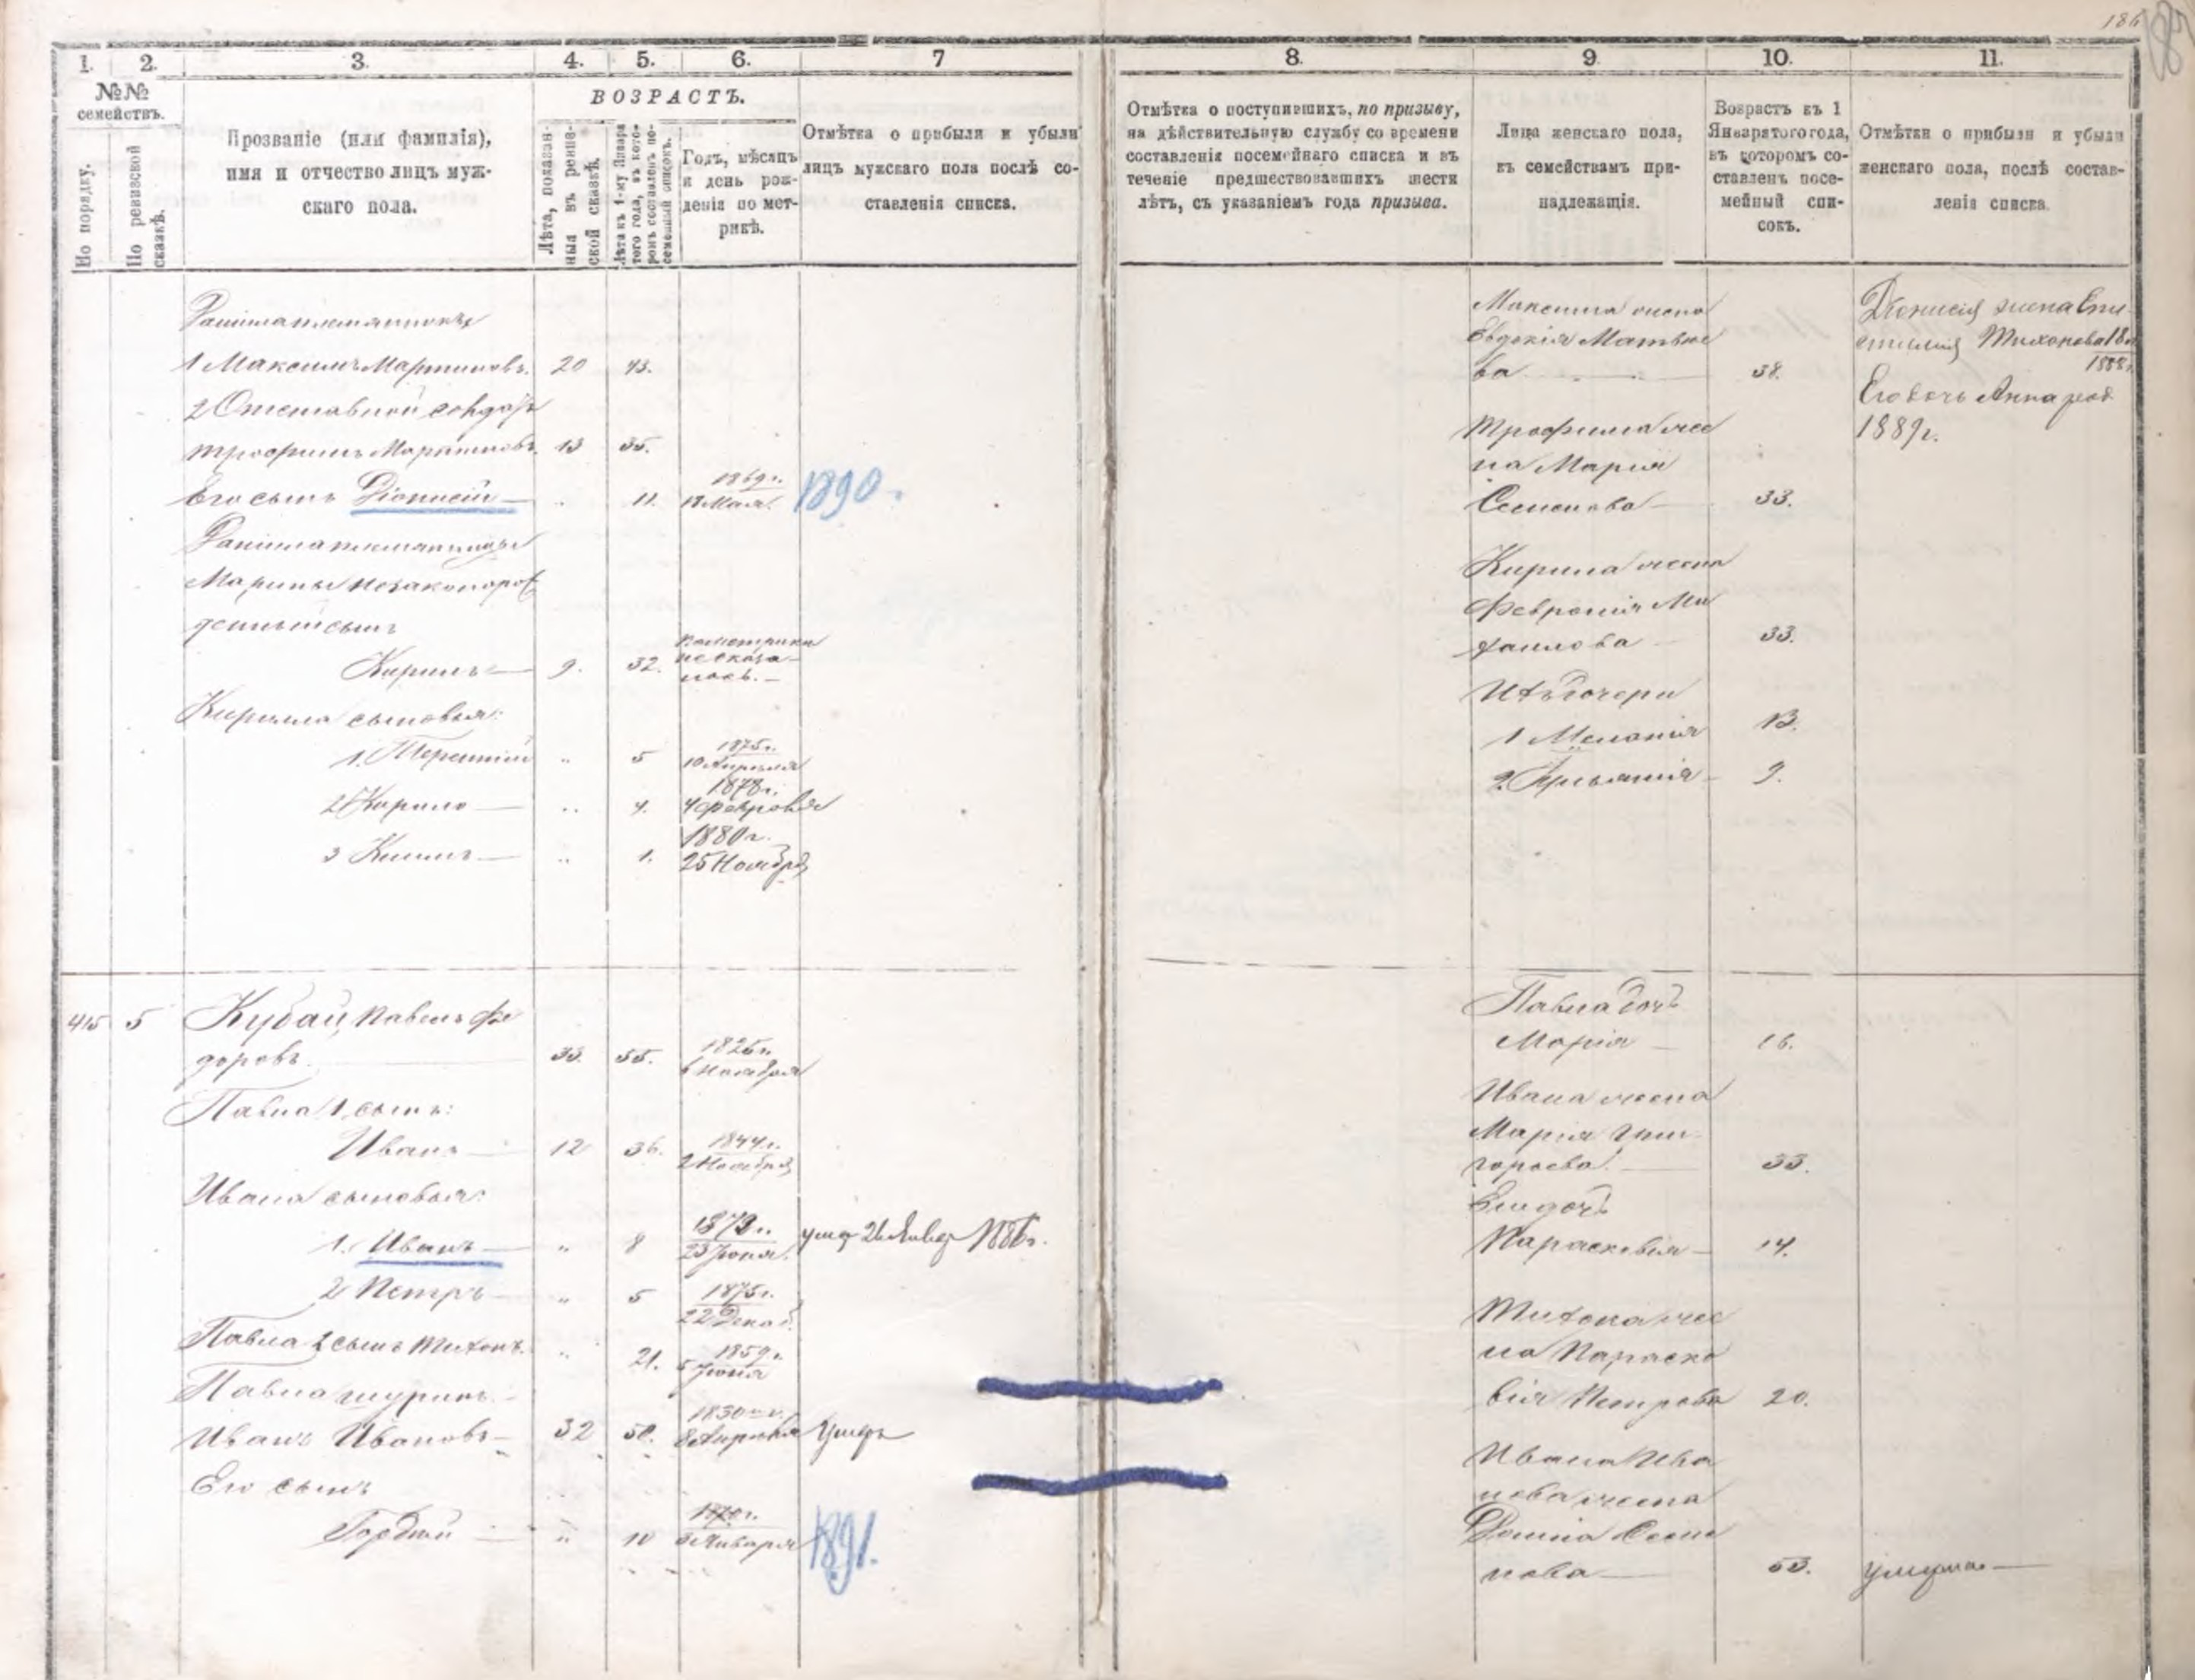 186
187
1. 2. 3. 4. 5. 6. 7
№№ семействъ.
По порядку.
По ревизской сказкѣ.
Прозваніе (или фамилія),
имя и отчество лицъ муж-
скаго пола.
ВОЗРАСТЪ.
Лѣта, показан-
ныя въ ревиз-
ской сказкѣ.
Лѣта къ 1-му Января
того года, въ кото-
ромъ составленъ по-
семейный списокъ.
Годъ, мѣсяцъ
и день рож-
денія по мет-
рикѣ.
Отмѣтка о прибыли и убыли
лицъ мужскаго пола послѣ со-
ставленія списка.
Даніила племянники
1 Максимъ Мартиновъ. 20 43.
2 Отставной солдатъ
Трофимъ Мартиновъ. 13 35.
Его сынъ Діонисій „ 11. 1869 г. 18 Мая. 1890.
Даніила племянницы
Марины незаконорож
денный сынъ
Кирилъ 9. 32. По метрики не оказа- лось.
Кирилла сыновья:
1. Терентій „ 5 1875 г. 10 Апреля
2 Кирило „ 4. 1878 г. 4 февраля
3 Климъ „ 1. 1880 г. 25 Ноября
415 5 Кубай, Павелъ Фе
доровъ. 33. 55. 1825 г. 6 Ноября
Павла 1 сынъ:
Иванъ 12 36. 1844 г. 2 Ноября
Ивана сыновья:
1. Иванъ „ 8 1872 г. 23 Іюня. умер 26 Январ 1886 г.
2 Петръ „ 5 1875 г. 22 Декаб.
Павла 2 сынъ Тихонъ. „ 21. 1859 г. 5 Іюня
Павла шуринъ.
Иванъ Ивановъ 32 50. 1830 г. 8 Апреля Умеръ
Его сынъ
Гордий „ 10 1870 г. 3 Января 1891.
8. 9. 10. 11.
Отмѣтка о поступившихъ, по призыву,
на дѣйствительную службу со времени
составленія посемейнаго списка и въ
теченіе предшествовавшихъ шести
лѣтъ, съ указаніемъ года призыва.
Лица женскаго пола,
къ семействамъ при-
надлежащія.
Возрастъ къ 1
Января того года,
въ котором со-
ставленъ посе-
мейный спи-
сокъ.
Отмѣтки о прибыли и убыли
женскаго пола, послѣ состав-
ленія списка.
Максима жена
Евдокія Матвѣе
ва 38.
Трофима же
на Марія
Семенова 33.
Кирила жена
Февронія Ми
хаилова 33.
Ихъ дочери
1 Меланія 13.
2. 9.
Діонисія жена
Тихонова 18 л
1888 г.
Его дочь Анна род
1889 г.
Павла дочь
Марія 16.
Ивана жена
Марія Гри-
горьева. 33.
Ихъ дочь
Параскевія 14.
Тихона же
на Параске
вія Петрова 20.
Ивана Ива
нова жена
Домна Семе
нова 53. умерла